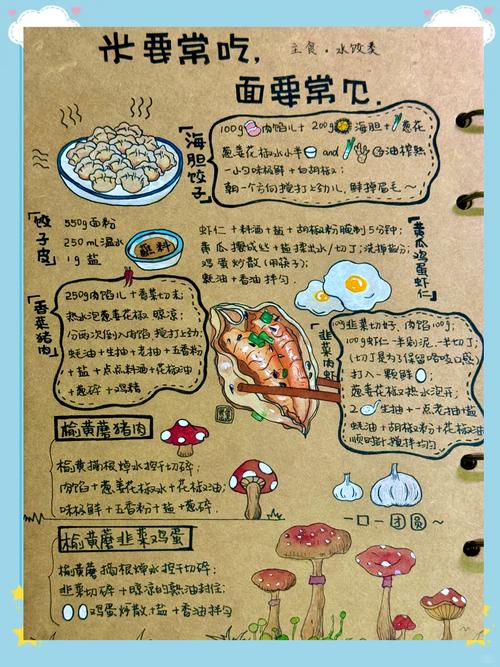 米要常吃,
主食·水饺类
面要常见.
「海胆饺子」
100g肉馅儿+200g海胆+葱花
葱姜花椒水小半 and 油榨熟
一小勺味极鲜+白胡椒;
朝一个方向搅打上劲儿,鲜掉眉毛~
「饺子皮」
550g面粉
250ml温水
1g盐
蘸料
「黄瓜鸡蛋虾仁」
虾仁+料酒+盐+胡椒粉腌制5分钟;
黄瓜擦成丝+盐揉出水/切丁;
鸡蛋炒散(用筷子);
蚝油+香油拌匀.
「香菜猪肉」
250g肉馅儿+香菜切末;
热水泡葱姜花椒 晾凉;
分两次倒入肉馅,搅打上劲;
蚝油+生抽+老抽+五香粉
+盐+点点料酒+花椒油
+葱碎+鸡精
「韭菜肉虾」
韭菜切好,肉馅100g;
100g虾仁一半剁泥,一半切丁;
(切丁是为了保留咯吱口感)
打入一颗鲜;
葱姜花椒热水泡开;
2生抽+一点老抽+盐
蚝油+胡椒粉+花椒油
顺时针搅拌均匀.
榆黄蘑猪肉
榆黄蘑摘根焯水控干切碎;
肉馅+葱姜花椒水+花椒油;
味极鲜+五香粉+盐+葱碎.
一口一团圆~
榆黄蘑韭菜鸡蛋
榆黄蘑摘根焯水控干切碎;
韭菜切碎+晾凉的熟油封住;
鸡蛋炒散+盐+香油拌匀